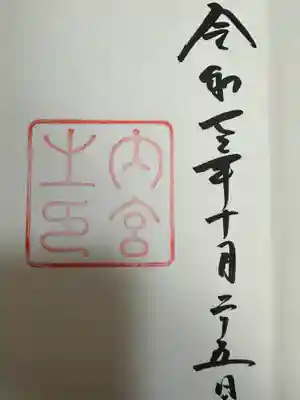 令和三年十月二十五日
内宮
之印